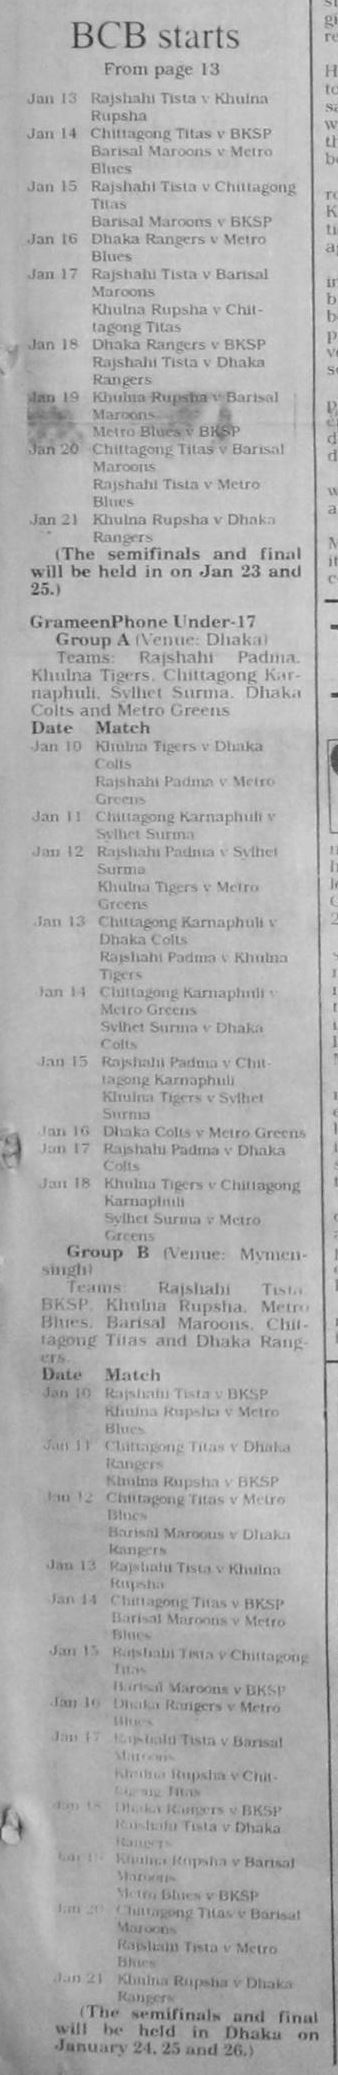 BCB starts
From page 13
Jan 13 Rajshahi Tista v Khulna
Rupsha
Jan 14 Chittagong Titas v BKSP
Barisal Maroons v Metro
Blues
Jan 15 Rajshahi Tista v Chittagong
Titas
Barisal Maroons v BKSP
Jan 16 Dhaka Rangers v Metro
Blues
Jan 17 Rajshahi Tista v Barisal
Maroons
Khulna Rupsha v Chit-
tagong Titas
Jan 18 Dhaka Rangers v BKSP
Rajshahi Tista v Dhaka
Rangers
Jan 19 Khulna Rupsha v Barisal
Maroons
Metro Blues v BKSP
Jan 20 Chittagong Titas v Barisal
Maroons
Rajshahi Tista v Metro
Blues
Jan 21 Khulna Rupsha v Dhaka
Rangers
(The semifinals and final
will be held in on Jan 23 and
25.)
GrameenPhone Under-17
Group A (Venue: Dhaka)
Teams: Rajshahi Padma,
Khulna Tigers, Chittagong Kar-
naphuli, Sylhet Surma, Dhaka
Colts and Metro Greens
Date Match
Jan 10 Khulna Tigers v Dhaka
Colts
Rajshahi Padma v Metro
Greens
Jan 11 Chittagong Karnaphuli v
Sylhet Surma
Jan 12 Rajshahi Padma v Sylhet
Surma
Khulna Tigers v Metro
Greens
Jan 13 Chittagong Karnaphuli v
Dhaka Colts
Rajshahi Padma v Khulna
Tigers
Jan 14 Chittagong Karnaphuli v
Metro Greens
Sylhet Surma v Dhaka
Colts
Jan 15 Rajshahi Padma v Chit-
tagong Karnaphuli
Khulna Tigers v Sylhet
Surma
Jan 16 Dhaka Colts v Metro Greens
Jan 17 Rajshahi Padma v Dhaka
Colts
Jan 18 Khulna Tigers v Chittagong
Karnaphuli
Sylhet Surma v Metro
Greens
Group B (Venue: Mymen-
singh)
Teams: Rajshahi Tista,
BKSP, Khulna Rupsha, Metro
Blues, Barisal Maroons, Chit-
tagong Titas and Dhaka Rang-
ers.
Date Match
Jan 10 Rajshahi Tista v BKSP
Khulna Rupsha v Metro
Blues
Jan 11 Chittagong Titas v Dhaka
Rangers
Khulna Rupsha v BKSP
Jan 12 Chittagong Titas v Metro
Blues
Barisal Maroons v Dhaka
Rangers
Jan 13 Rajshahi Tista v Khulna
Rupsha
Jan 14 Chittagong Titas v BKSP
Barisal Maroons v Metro
Blues
Jan 15 Rajshahi Tista v Chittagong
Titas
Barisal Maroons v BKSP
Jan 16 Dhaka Rangers v Metro
Blues
Jan 17 Rajshahi Tista v Barisal
Maroons
Khulna Rupsha v Chit-
tagong Titas
Jan 18 Dhaka Rangers v BKSP
Rajshahi Tista v Dhaka
Rangers
Jan 19 Khulna Rupsha v Barisal
Maroons
Metro Blues v BKSP
Jan 20 Chittagong Titas v Barisal
Maroons
Rajshahi Tista v Metro
Blues
Jan 21 Khulna Rupsha v Dhaka
Rangers
(The semifinals and final
will be held in Dhaka on
January 24, 25 and 26.)